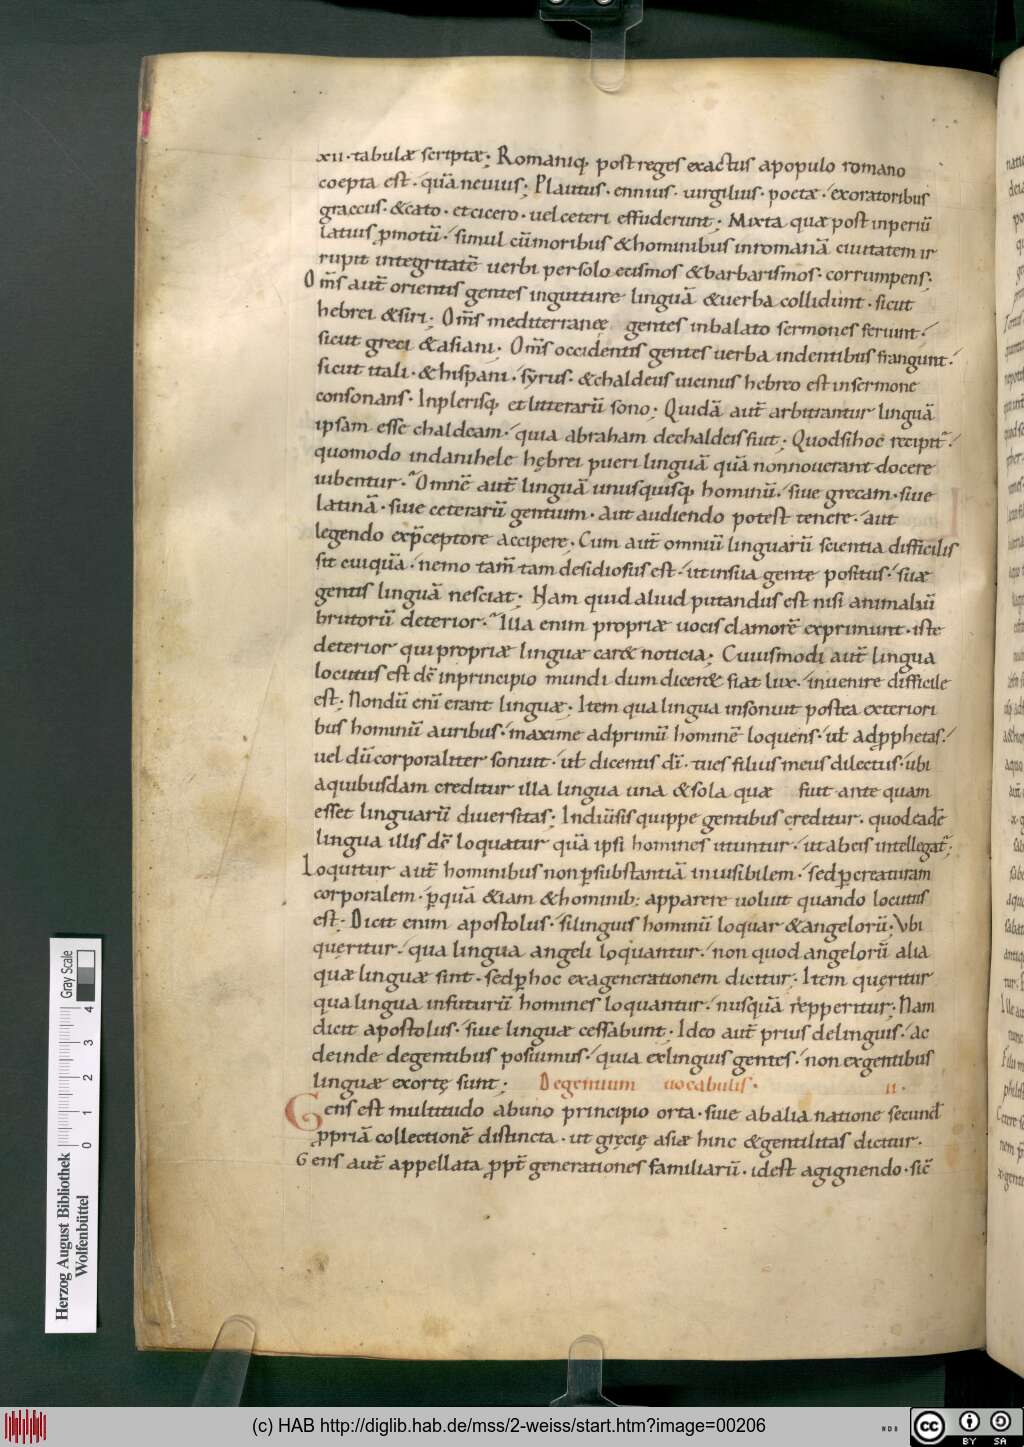 xii · tabulæ scriptæ; Romaniq; post reges exactus apopulo romano
coepta est · quā neuius; Plautus · ennius · uirgilius · poetæ · exoratoribus
graccus · &cato · etcicero · uel ceteri effuderunt; Mixta quæ post inperiū
latius p̱motū · simul cū moribus &hominibus inromanā ciuitatem ir
rupit integritatē uerbi persolo ecismos &barbarismos · corrumpens;
Om̄s aut̄ orientis gentes ingutture linguā &uerba collidunt · sicut
hebrei &siri; Om̄s mediterraneę gentes inbalato sermones feriunt ·
sicut greci &asiani · Om̄s occidentis gentes uerba indentibus frangunt ·
sicut itali · &hispani · syrus · &chaldeus uicinus hebreo est insermone
consonans · Inplerisq; et litterarū sono; Quidā aut̄ arbitrantur linguā
ipsam esse chaldeam · quia abraham dechaldeis fuit; Quodsihoc recipit̄ ·
quomodo indanihele hębrei pueri linguā quā nonnouerant docere
iubentur · Omnē aut̄ linguā unusquisq; hominū · siue grecam · siue
latinā · siue ceterarū gentium · Aut audiendo potest tenere · aut
legendo exp̄ceptore accipere · Cum aut̄ omniū linguarū scientia difficilis
sit cuiquā · nemo tam̄ tam desidiosus est · ut insua gente positus · suæ
gentis linguā nesciat; Nam quid aliud putandus est nisi animaliū
brutorū deterior · Illa enim propriæ uocis clamorē exprimunt · iste
deterior qui propriæ linguæ car& noticia; Cuiusmodi aut̄ lingua
locutus est ds̄ inprincipio mundi dum dicer& fiat lux · inuenire difficile
est; Nondū eni̅ erant linguæ; Item qua lingua insonuit postea exteriori
bus hominū auribus · maxime adprimū hominē loquens · ul̄ adp̱phetas ·
uel dū corporaliter sonuit · ul̄ dicentis dī · tues filius meus dilectus · ubi
aquibusdam creditur illa lingua una &sola quæ fuit ante quam
esset linguarū diuersitas; Indiūsis quippe gentibus creditur · quod eadē
lingua illis ds̄ loquatur quā ipsi homines utuntur · ut abeis intellegat̄;
Loquitur aut̄ hominibus non p̱substantiā inuisibilem · sed p̱creaturam
corporalem · p̱quā &iam &hominib: apparere uoluit quando locutus
est · Dicit enim apostolus · silinguis hominū loquar &angelorū; Vbi
quęritur · qua lingua angeli loquantur · non quod angelorū alia
quæ linguæ sint · sed p̱hoc exagenerationem dicitur · Item quęritur
qua lingua infuturū homines loquantur · nusquā repperitur; Nam
dicit apostolus · siue linguæ cessabunt; Ideo aut̄ prius delinguis · ac
deinde degentibus posuimus · quia exlinguis gentes · non exgentibus
linguæ exortę sunt; Degentium uocabulis · ii ·
Gens est multitudo abuno principio orta · siue abalia natione secund̄
p̱priā collectionē distincta · ut gręcię asiæ hinc &gentilitas dicitur ·
Gens aut̄ appellata p̱pt̄ generationes familiarū · idest agignendo · sic̄
Gray Scale
0 1 2 3 4
Herzog August Bibliothek
Wolfenbüttel
(c) HAB http://diglib.hab.de/mss/2-weiss/start.htm?image=00206
cc BY SA